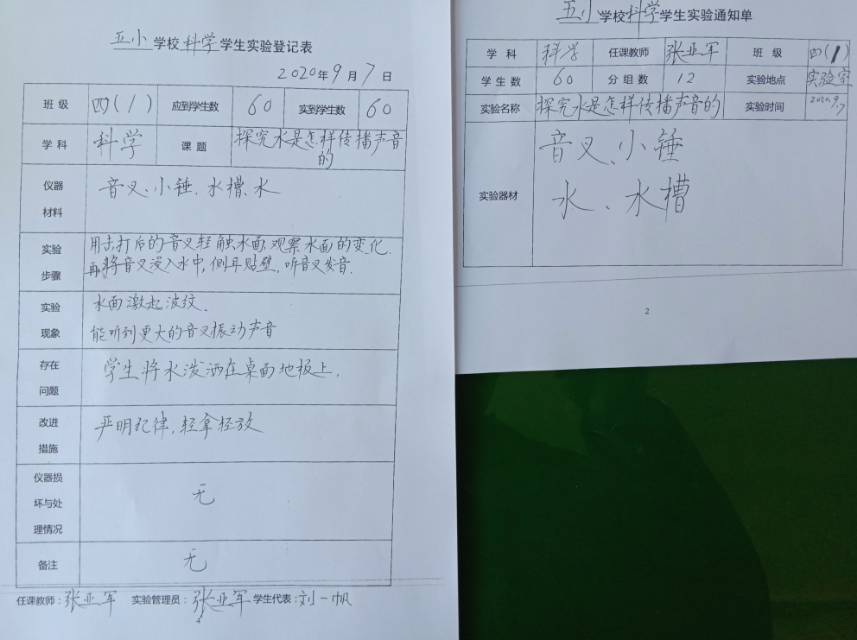 五小学校科学学生实验登记表
2020年9月7日
班级 四(1) 应到学生数 60 实到学生数 60
学科 科学 课题 探究水是怎样传播声音的
仪器材料 音叉、小锤、水槽、水
实验步骤 用击打后的音叉轻触水面,观察水面的变化.
再将音叉浸入水中,侧耳贴壁,听音叉发音.
实验现象 水面激起波纹.
能听到更大的音叉振动声音
存在问题 学生将水泼洒在桌面地板上.
改进措施 严明纪律,轻拿轻放
仪器损坏与处理情况 无
备注 无
任课教师:张亚军 实验管理员:张亚军 学生代表:刘一帆
五小学校科学学生实验通知单
学科 科学 任课教师 张亚军 班级 四(1)
学生数 60 分组数 12 实验地点 实验室
实验名称 探究水是怎样传播声音的 实验时间 2020.9.7
实验器材 音叉、小锤
水、水槽
2